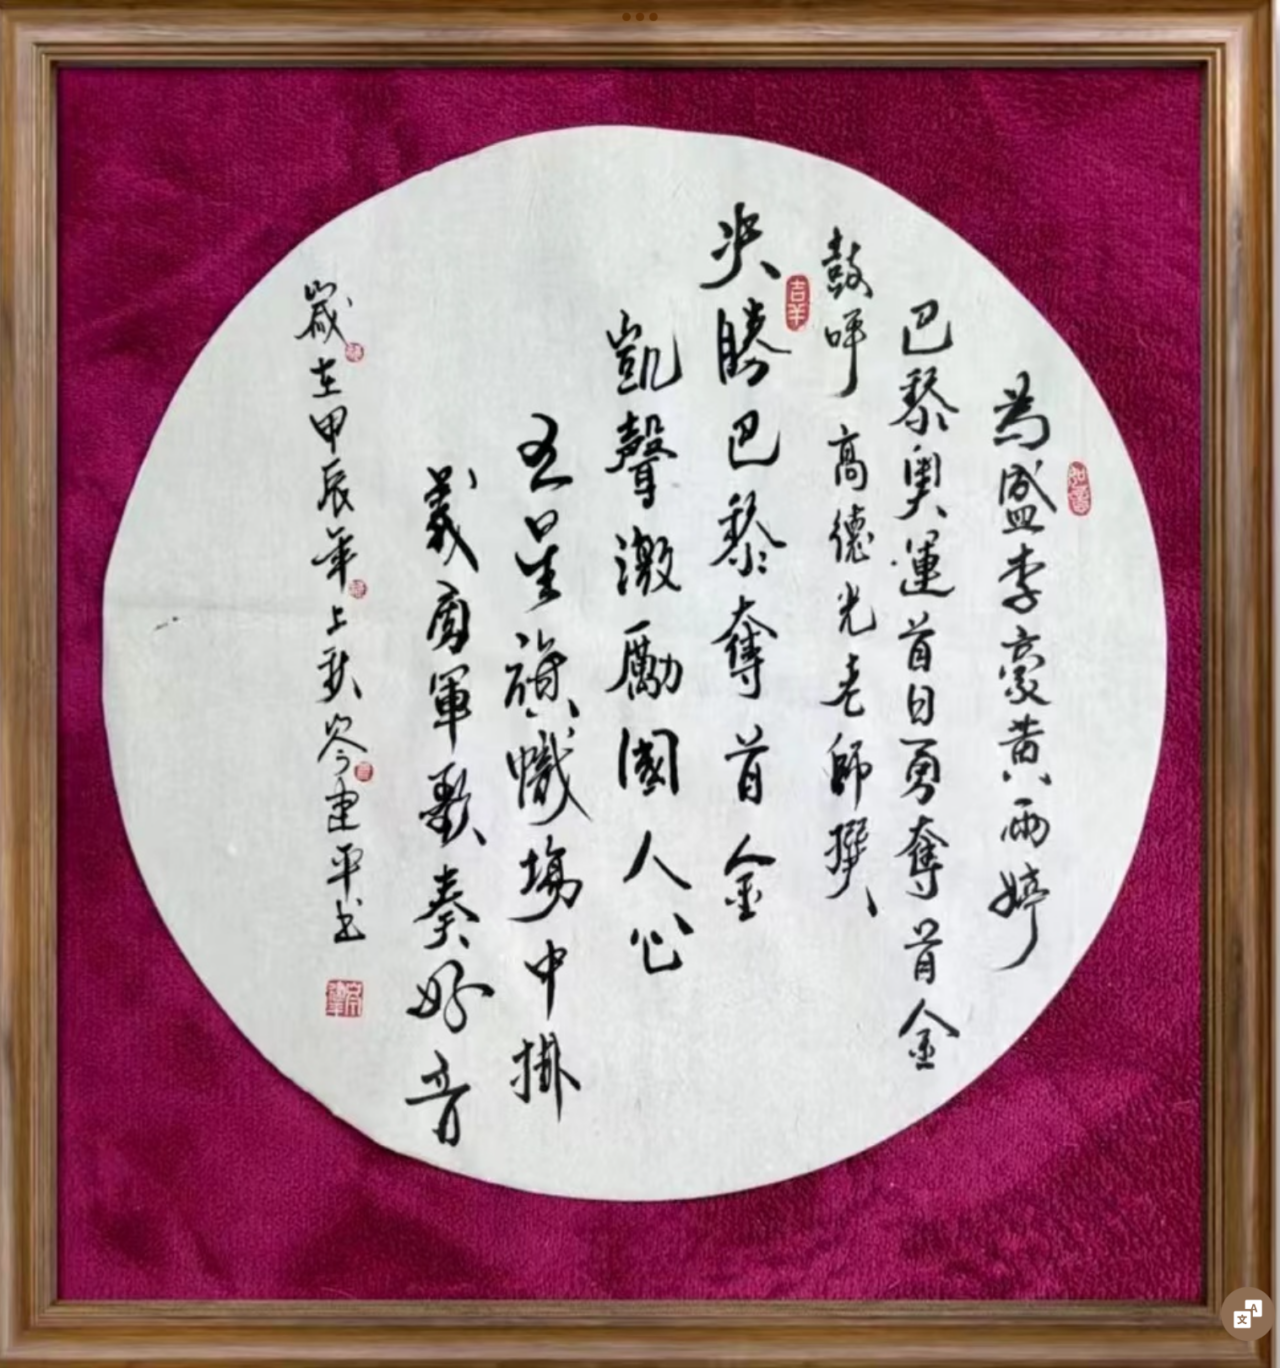 為盛李豪黄雨婷
巴黎奧運首日勇奪首金
鼓呼高德光老師撰
吉羊
决勝巴黎奪首金
凱聲激勵國人心
五星旗幟場中掛
義勇軍歌奏好音
歲在甲辰年上秋岑建平书